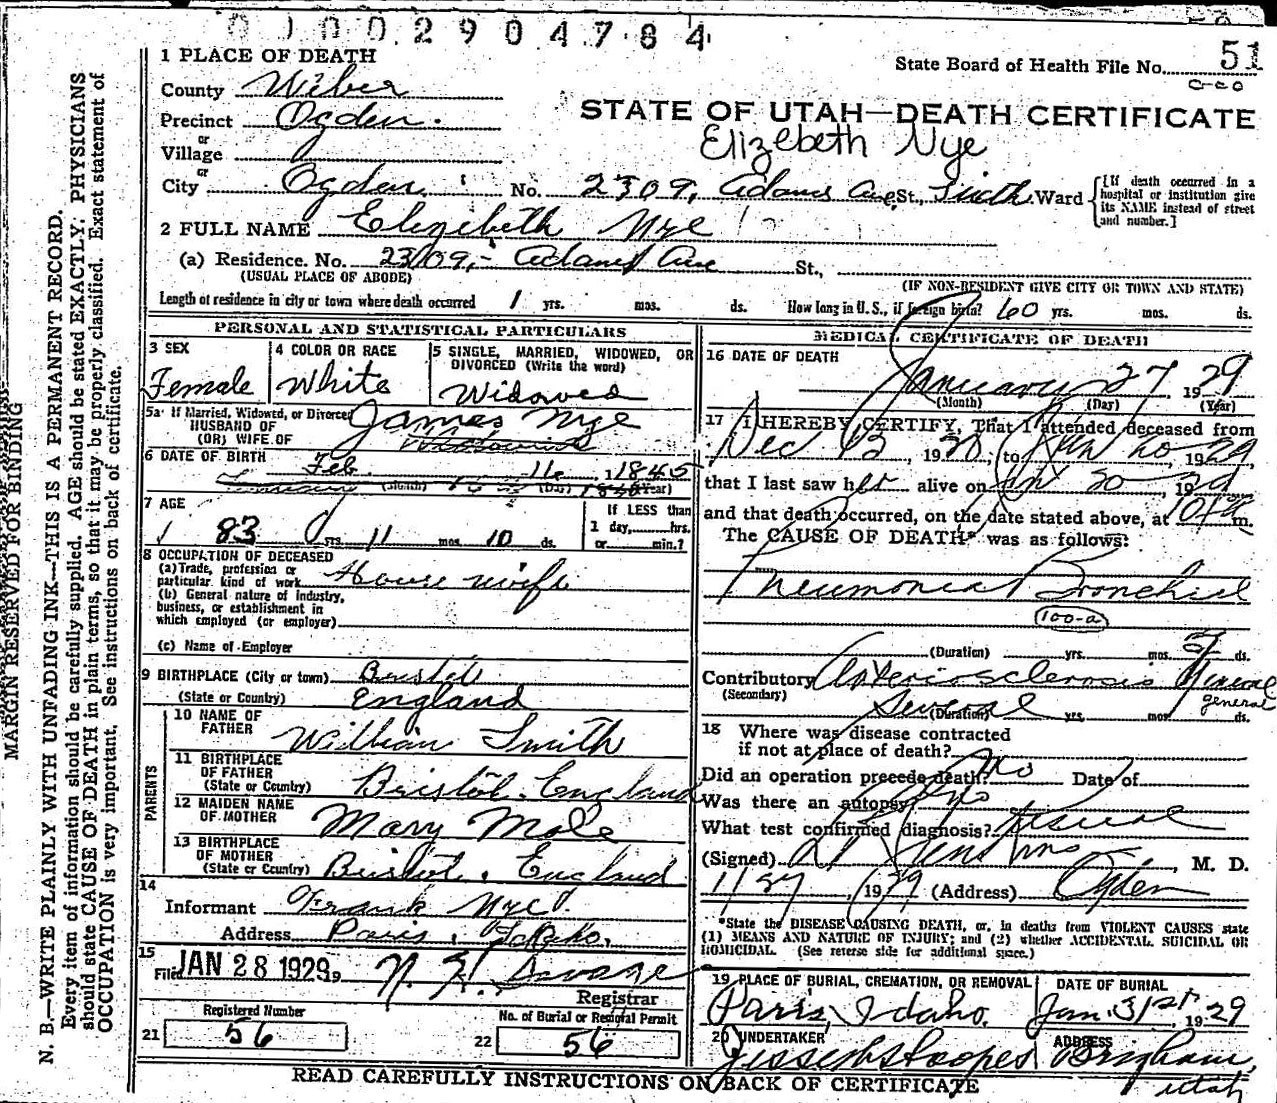 0002904784
1 PLACE OF DEATH
State Board of Health File No. 51
County Weber
STATE OF UTAH—DEATH CERTIFICATE
Precinct Ogden.
Elizebeth Nye
or
Village
or
City Ogden. No. 2309, Adams Ave St., Sixth Ward
[If death occurred in a hospital or institution give its NAME instead of street and number.]
2 FULL NAME Elezibeth Nye
(a) Residence. No. 2309,- Adams Ave St.,
(USUAL PLACE OF ABODE)
(IF NON-RESIDENT GIVE CITY OR TOWN AND STATE)
Length of residence in city or town where death occurred 1 yrs. mos. ds. How long in U.S., if foreign birth? 60 yrs. mos. ds.
PERSONAL AND STATISTICAL PARTICULARS
3 SEX
Female
4 COLOR OR RACE
White
5 SINGLE, MARRIED, WIDOWED, OR DIVORCED (Write the word)
Widowed
5a If Married, Widowed, or Divorced
HUSBAND OF
(OR) WIFE OF
James Nye
6 DATE OF BIRTH
Feb 16 1845
(Month) (Day) (Year)
7 AGE
83 yrs. 11 mos. 10 ds.
If LESS than
1 day, hrs.
or min.?
8 OCCUPATION OF DECEASED
(a) Trade, profession or
particular kind of work House wife
(b) General nature of industry,
business, or establishment in
which employed (or employer)
(c) Name of Employer
9 BIRTHPLACE (City or town) Bristol
(State or Country) England
PARENTS
10 NAME OF
FATHER William Smith
11 BIRTHPLACE
OF FATHER
(State or Country) Bristol. England
12 MAIDEN NAME
OF MOTHER Mary Mole
13 BIRTHPLACE
OF MOTHER
(State or Country) Bristol. England
14
Informant Frank Nye.
Address Paris, Idaho.
15
Filed JAN 28 1929 19 N. H. Savage
Registrar
Registered Number
21 56
No. of Burial or Removal Permit
22 56
MEDICAL CERTIFICATE OF DEATH
16 DATE OF DEATH
January 27 1929
(Month) (Day) (Year)
17 I HEREBY CERTIFY, That I attended deceased from
Dec 13, 1928, to Jan 20, 1929,
that I last saw her alive on Jan 20, 1929
and that death occurred, on the date stated above, at 10 a m.
The CAUSE OF DEATH* was as follows:
Pneumonia Bronchial
100-a
(Duration) yrs. mos. ds.
Contributory Arteriosclerosis General
(Secondary)
general
Several (Duration) yrs. mos. ds.
18 Where was disease contracted
if not at place of death?
Did an operation precede death? No Date of
Was there an autopsy no
What test confirmed diagnosis? usual
(Signed) M. D.
1/27, 1929 (Address) Ogden
*State the DISEASE CAUSING DEATH, or, in deaths from VIOLENT CAUSES state
(1) MEANS AND NATURE OF INJURY; and (2) whether ACCIDENTAL, SUICIDAL OR
HOMICIDAL. (See reverse side for additional space.)
19 PLACE OF BURIAL, CREMATION, OR REMOVAL
Paris, Idaho.
DATE OF BURIAL
Jan. 31st, 1929
20 UNDERTAKER
ADDRESS
Brigham,
Utah
READ CAREFULLY INSTRUCTIONS ON BACK OF CERTIFICATE
MARGIN RESERVED FOR BINDING
N. B.—WRITE PLAINLY WITH UNFADING INK—THIS IS A PERMANENT RECORD.
Every item of information should be carefully supplied. AGE should be stated EXACTLY. PHYSICIANS
should state CAUSE OF DEATH in plain terms, so that it may be properly classified. Exact statement of
OCCUPATION is very important. See instructions on back of certificate.